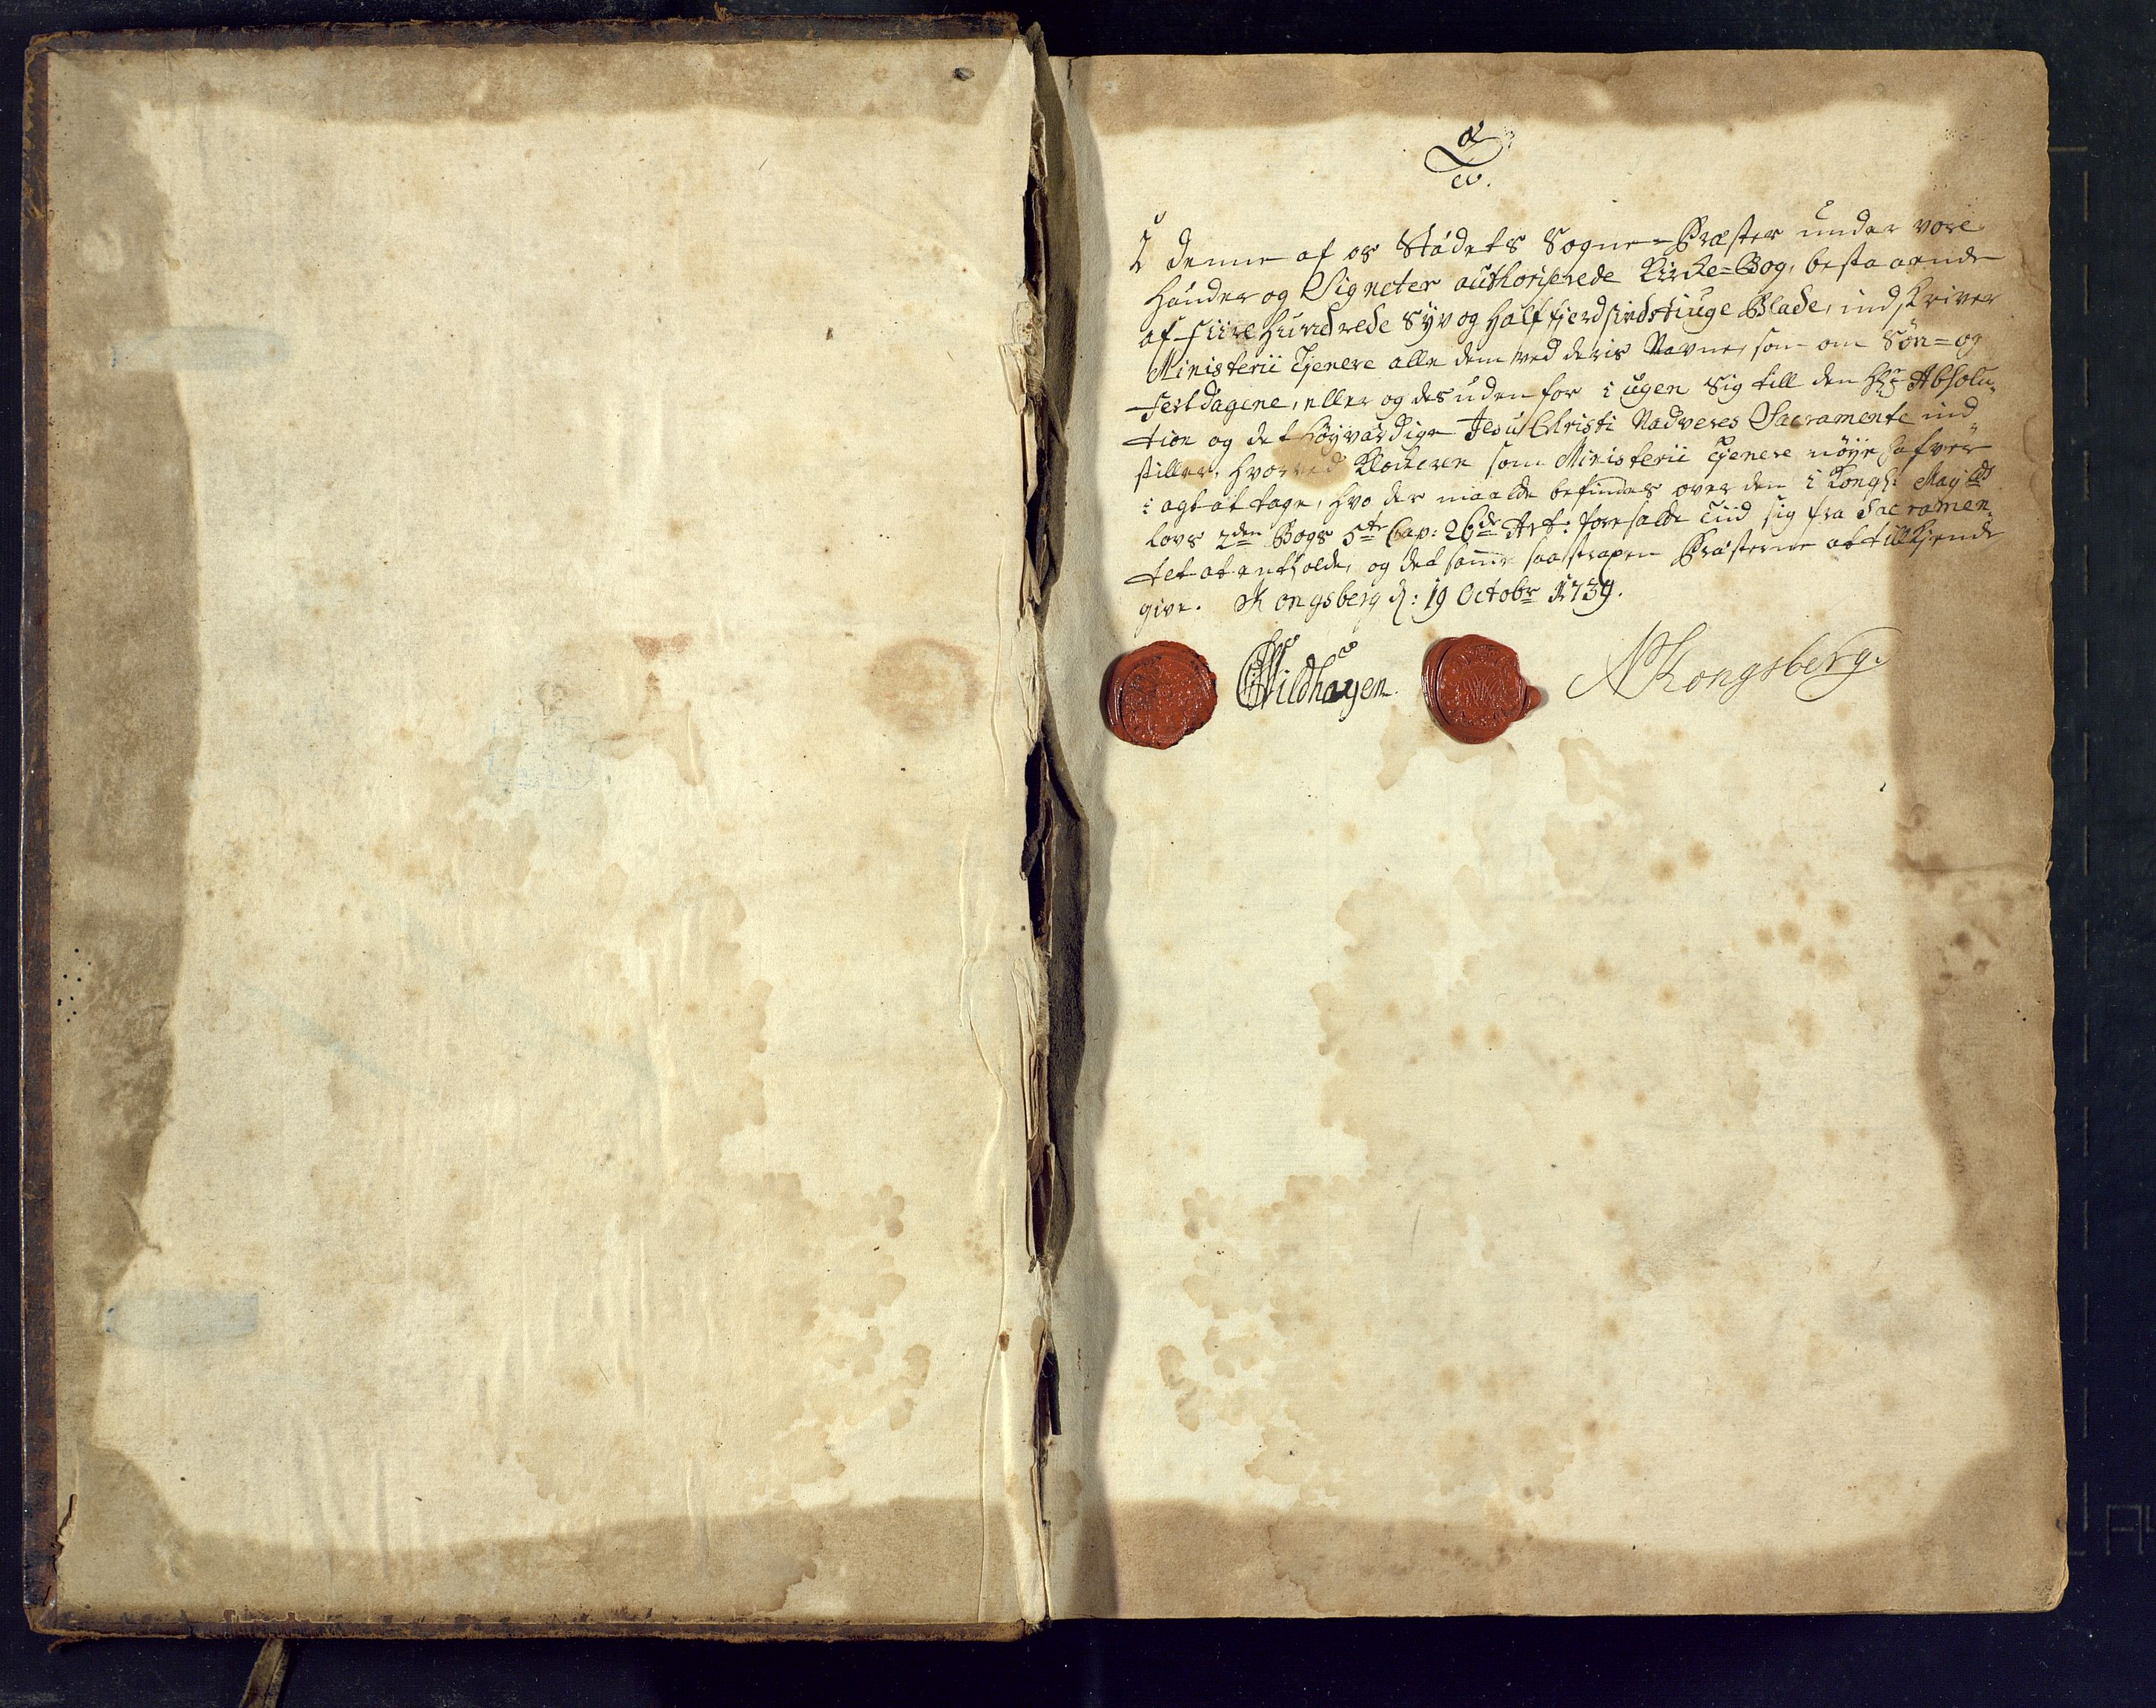 α
ω.
I denne af os Stædets Sogne-Præster under vore
Hænder og Signeter authoriserede Kirke=Bog, bestaaende
af fiire Hundrede Syv og Halffjerdsindstiuge Blade, indskriver
Ministerii Tjenere alle dem ved deris Navne, som om Søn= og
Festdagene, eller og desuden for i ugen Sig till den Absolu-
tion og det Høyværdige Jesu Christi Nadveres Sacramente ind
stiller, hvorved Klockeren som Ministerii Tjenere nøye hafver
i agt at tage, hvo der maatte befindes over den i Kongl: May:ts
Lovs 2den Bogs 5te Cap: 26de Art: foresatte Tiid sig fra Sacramen-
tet at entholde, og det samme saa Præsterne at tillkjende
give. Kongsberg d: 19 Octobr 1739.
Wildhagen. N Kongsberg.